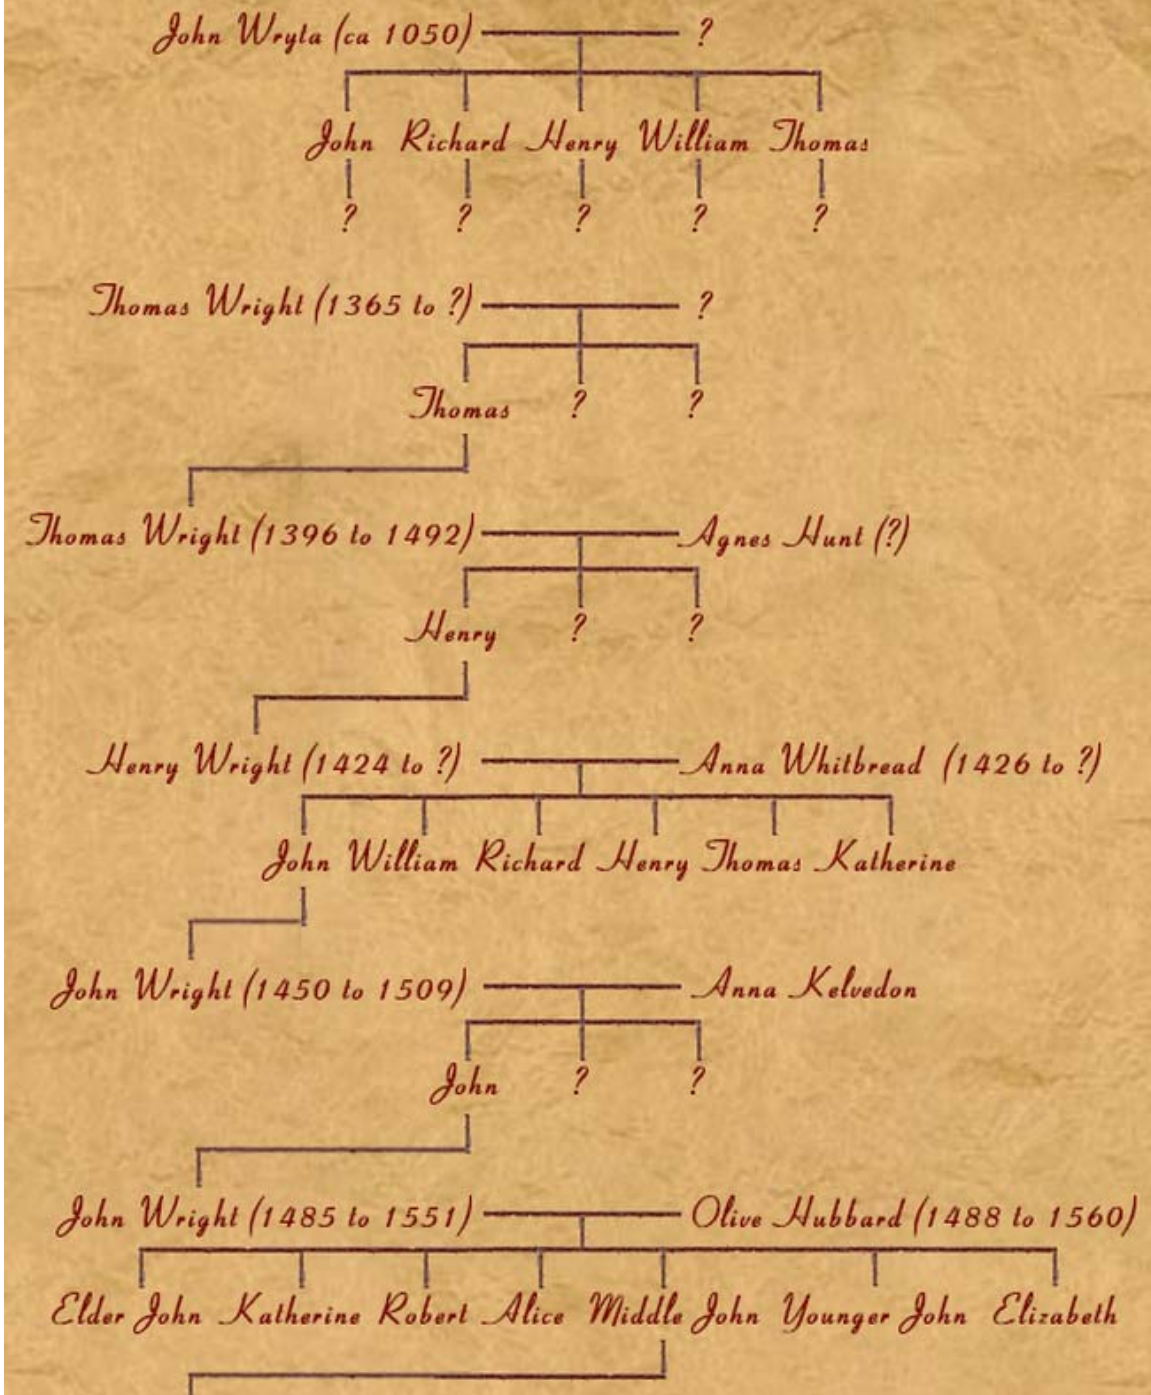 John Wryta (ca 1050) ?
John Richard Henry William Thomas
? ? ? ? ?
Thomas Wright (1365 to ?) ?
Thomas ? ?
Thomas Wright (1396 to 1492) Agnes Hunt (?)
Henry ? ?
Henry Wright (1424 to ?) Anna Whitbread (1426 to ?)
John William Richard Henry Thomas Katherine
John Wright (1450 to 1509) Anna Kelvedon
John ? ?
John Wright (1485 to 1551) Olive Hubbard (1488 to 1560)
Elder John Katherine Robert Alice Middle John Younger John Elizabeth